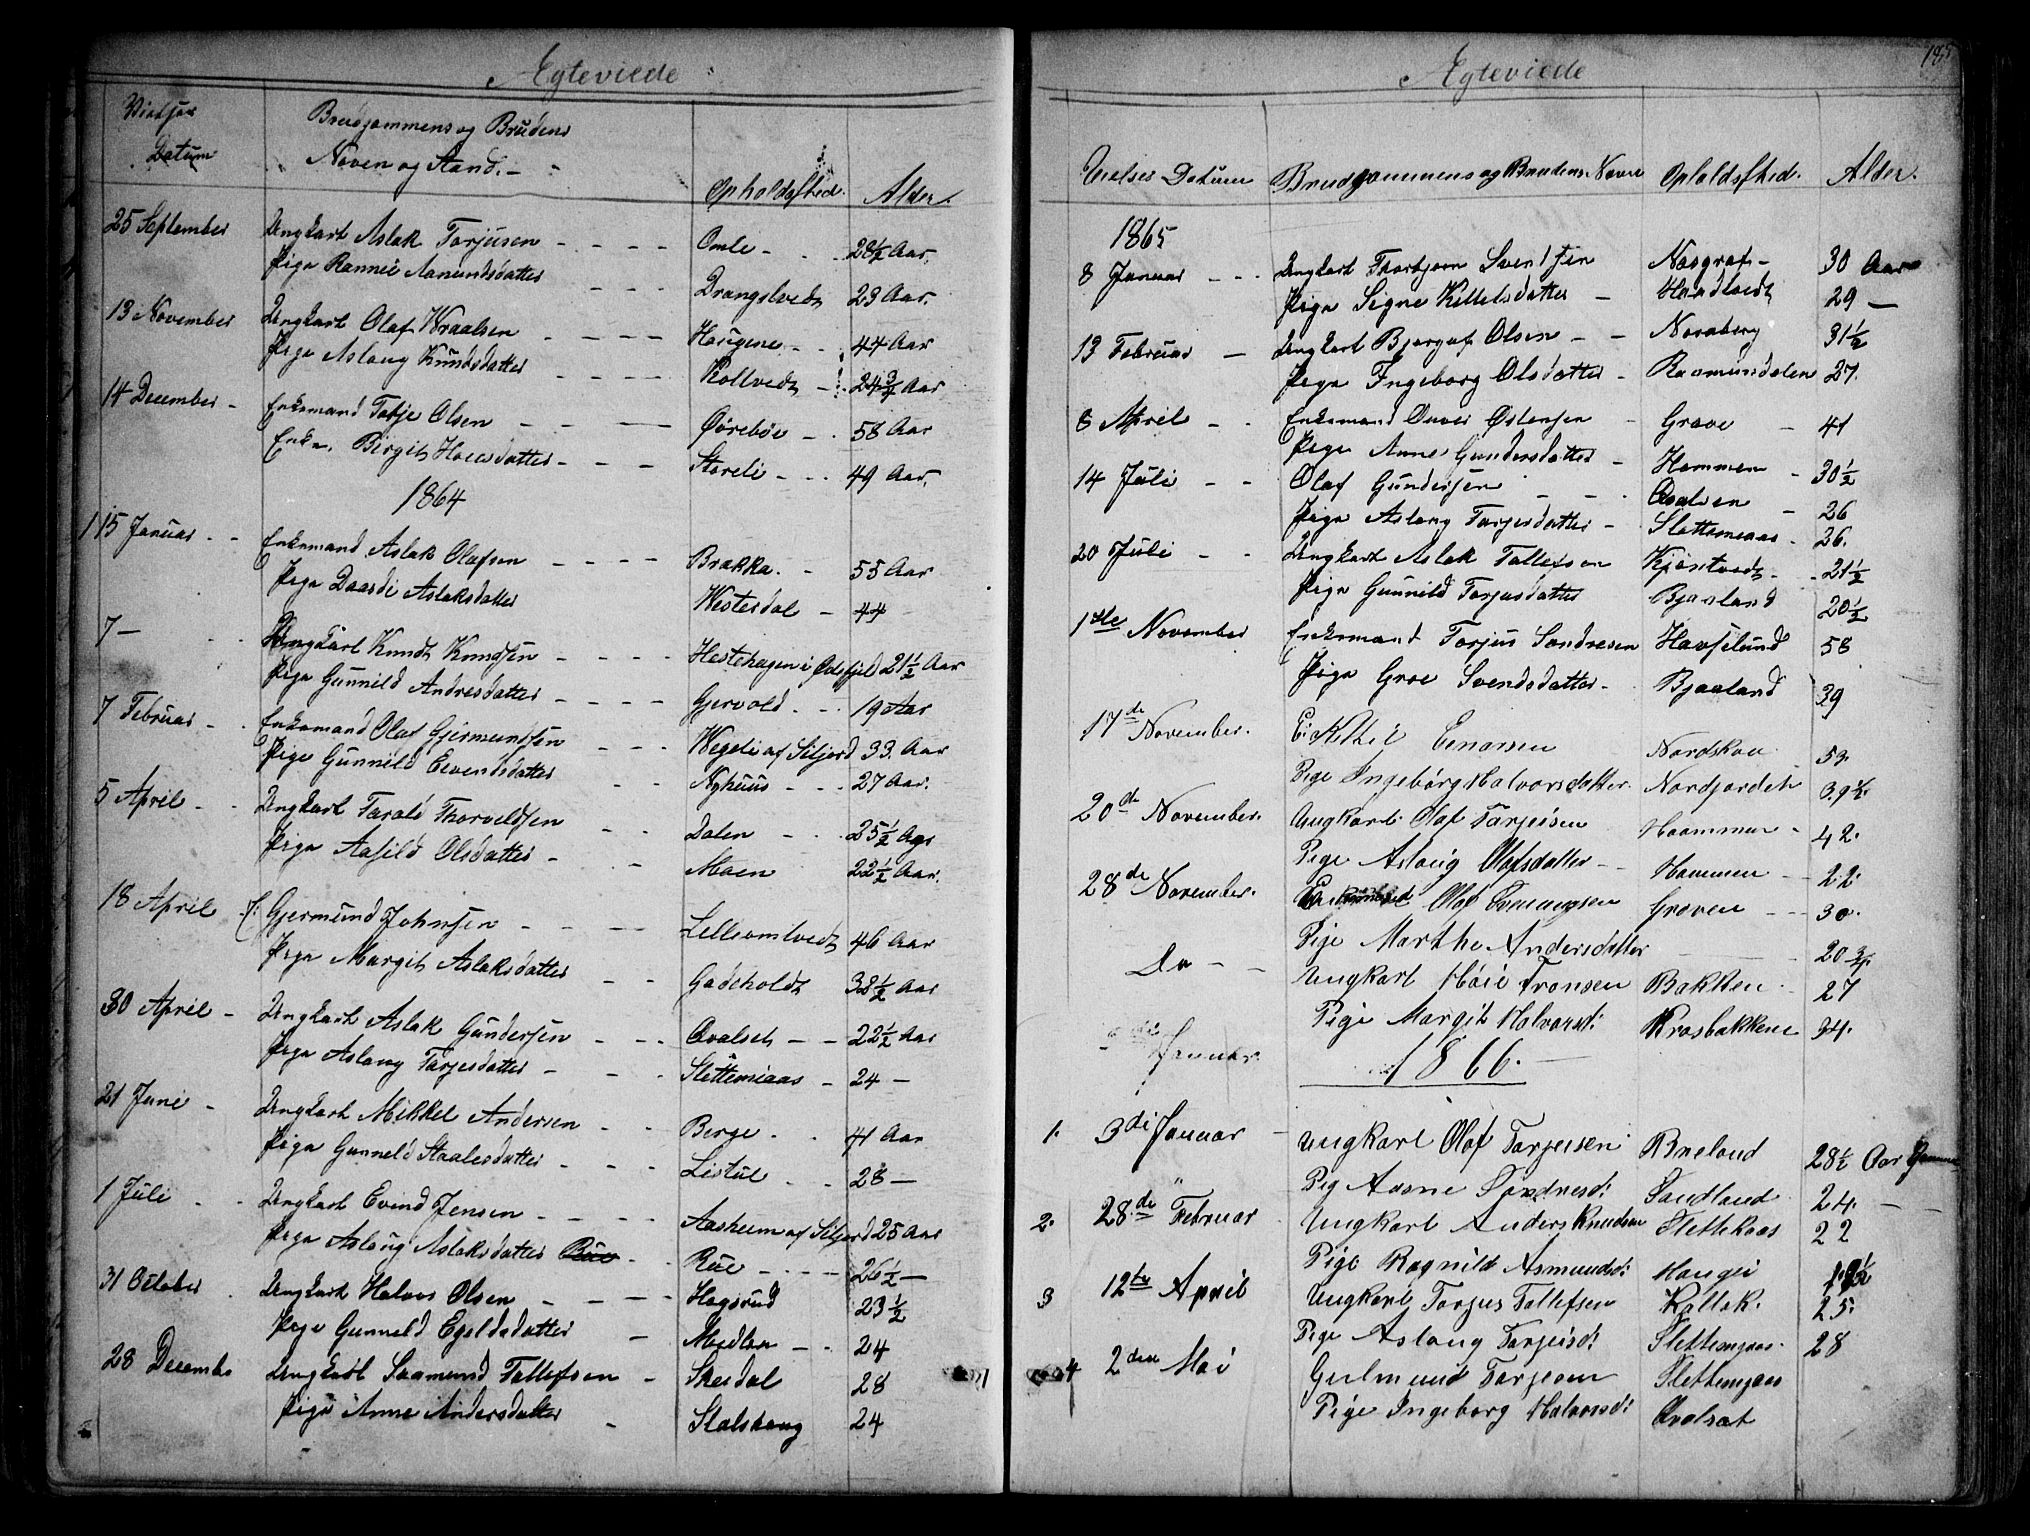 Ægteviede
Datum
Brudgommens og Brudens
Navn og Stand.
Opholdssted. Alder.
25 September Ungkarl Aslak Tarjusen - - - - Omle - 28½ Aar.
Pige Rannei Aamundsdatter - - - Drangstvedt 23 Aar.
13 November Ungkarl Olaf Wraalsen - - - - Haugene - - 44 Aar
Pige Aslaug Knudsdatter - - - - Kollvedt - 24¾ Aar
14 December - Enkemand Tarje Olsen - - - Øvrebøe - - 58 Aar
Enke. Birgit Hansdatter - - - Storeli - - - 49 Aar.
1864
15 Januar - - Enkemand Aslak Olafsen - - - - Brakka. - 55 Aar
Pige Daardi Aslaksdatter Westerdal - 44
7 - Ungkarl Knudt Knudsen - - - - Hestehagen i 21½ Aar
Pige Gunnild Andresdatter - - - - Gjervold - - - 19 Aar
7 Februar - - Enkemand Olaf Gjermundsen - - - Wegeli af Siljord 33. Aar
Pige Gunnild Eevendsdatter - - Nyhuus - - - 27 Aar.
5 April - - Ungkarl Tarald Thorveldsen - - Dalen - - - 25½ Aar
Pige Aasild Olsdatter - - Moen 22½ Aar.
18 April - Gjermund Johnsen - - - - Lilleomtvedt 46 Aar
Pige Margit Aslaksdatter - - Gadeholdt 38½ Aar
30 April - Ungkarl Aslak Gundersen - - - Qvalset - - 22½ Aar
Pige Aslaug Tarjesdatter - - - Slettemiaas - 24 -
21 Juni - Ungkarl Mikkel Andersen - - Berge - - 41 Aar
Pige Gunneld Staalesdatter - - - Listul - - 28 -
1 Juli - - Ungkarl Evind Jensen - - - - Aasheim af Siljord 25 Aar
Pige Aslaug Aslaksdatter Rue - - Rue - - - - 26½ -
31 October - Ungkarl Halvor Olsen - - - - Hagsrud 23½
Pige Gunneld Egeldsdatter - Moedlan - - 24
28 Decembe Ungkarl Saamund Tallefsen - Skeidal 28
Pige Anne Andersdatter - Stalskaug 24
Ægteviede
Vielses Datum Brudgommens og Brudens Navne Opholdssted. Alder.
1865
8 Januar - - Ungkarl Thorbjørn Svendsen Nasgraf - 30 Aar
Pige Signe Kittelsdatter - Haadtvedt 29 -
13 Februar - Ungkarl Bjorguf Olsen - - Noraberg 31½
Pige Ingeborg Olsdatter - Raamundalen 27.
8 April - - Enkemand Østensen - Grave - 41
Pige Anne Gundersdatter - Hammen - 30½
14 Juli - - Olaf Gundersen - - Qvalsen - 26
Pige Aslaug Tarjesdatter - Slettemeaas - 26.
20 Juli - - Ungkarl Aslak Tallefsen Kjøntvedt - - 21½
Pige Gunnild Tarjusdatter Bjaaland 20½
1ste November Enkemand Tarjus Sondresen Havslund 58
Pige Groe Svendsdatter - Bjaaland 39
17de November. E: Kithil Einarsen Nordskou 53.
Pige Ingebørg Halvorsdatter. Nordjordet 39½.
20de November. Ungkarl Olaf Tarjeisen Haammen - 42.
Pige Aslaug Olafsdatter - Hammen - - 22.
28de November. Olaf Evenungsen Groven - - 30.
Do - - Pige Marthe Andersdatter - - 20¾.
Ungkarl Høie Tronsen Bakken - 27
Pige Margit Halvorsd: Krosbakkene 34.
Januar. 1866. -
1. 3di Januar - Ungkarl Olof Tarjeisen Brieland 28½ Aar
Pig Aasne Sondresd: Sandland 24. -
2. 28de Februar Ungkarl Anders Knudsen Slettekaas 22
Pige Ragnild Asmundsd: Haugei 19½
3 12te April Ungkarl Tarjus Tallefsen Kaltak. 25.
Pige Aslaug Tarjeisd: Slettemjaas. 28
4 2den Mai Gulmund Tarjesen Slettemjaas
Pige Ingeborg Halvorsd: Qvalsæt